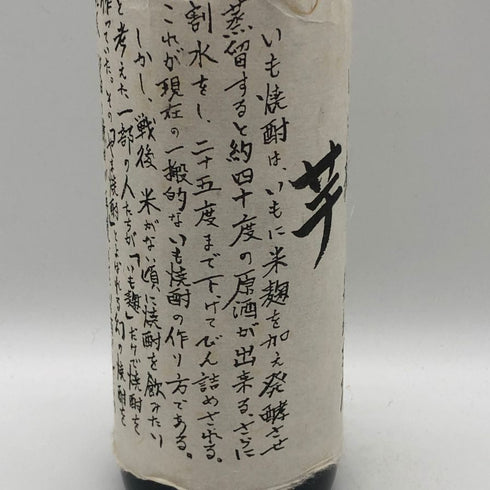 芋
いも焼酎は、いもに米麹を加え発酵させ
蒸留すると約四十度の原酒が出来る。さらに
割水をし、二十五度まで下げてびん詰めされる。
これが現在の一般的ないも焼酎の作り方である。
しかし、戦後 米がない頃に焼酎を飲みたい
と考えた一部の人たちが「いも麹」だけで焼酎を
作っていた。その
焼酎」とよばれる幻の焼酎を